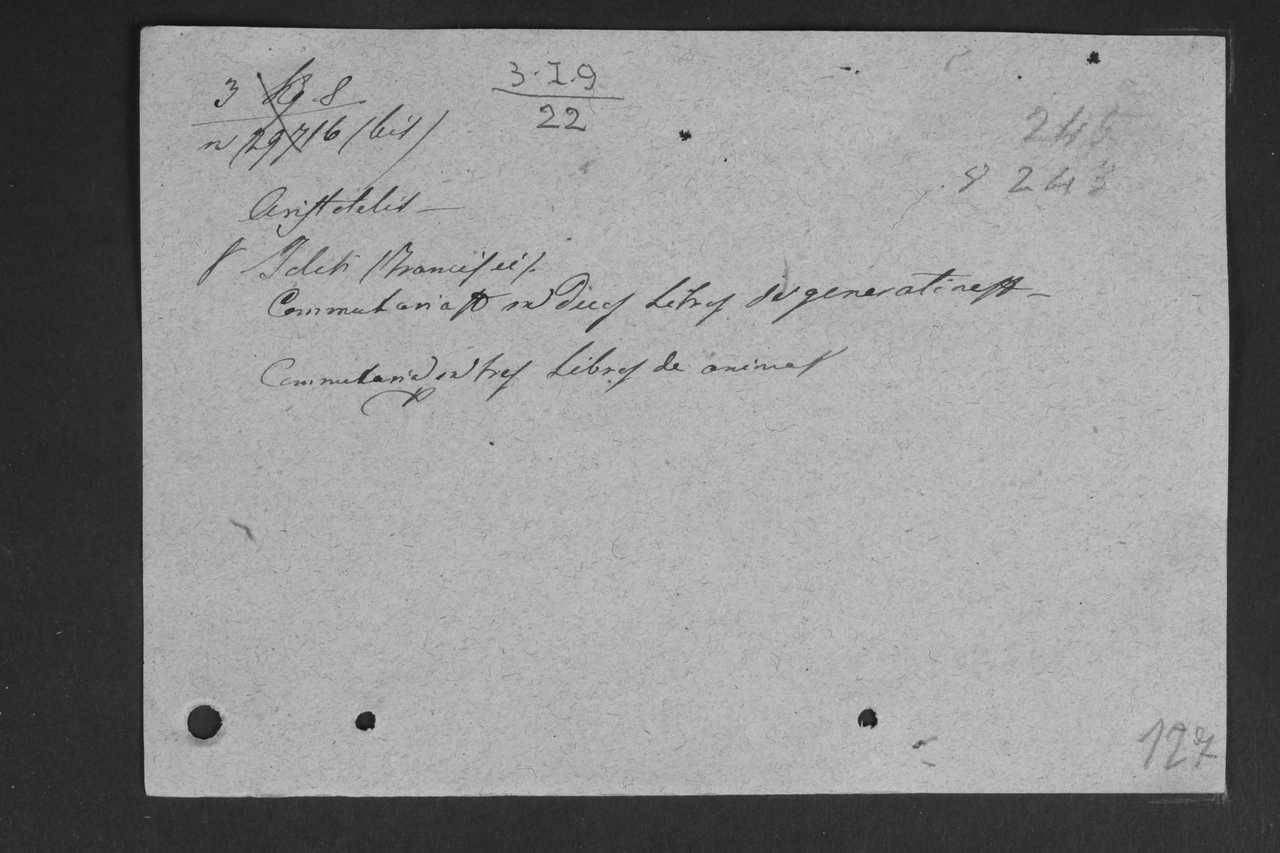 3 Kg 8
n 29716 (bis)
3·I·9
22
245
8 243
Aristotelis —
Toleti (Francisci).
Commentaria in Duos Libros de generatione
Commentaria in tres Libros de anima
127